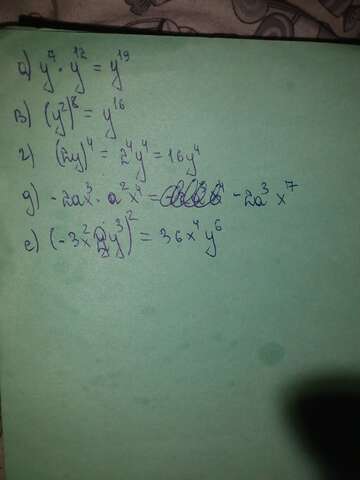 а) y⁷ · y¹² = y¹⁹
в) (y²)⁸ = y¹⁶
г) (2y)⁴ = 2⁴y⁴ = 16y⁴
д) -2ax³ · a²x⁴ = -2a³x⁷
е) (-3x²2y³)² = 36x⁴y⁶